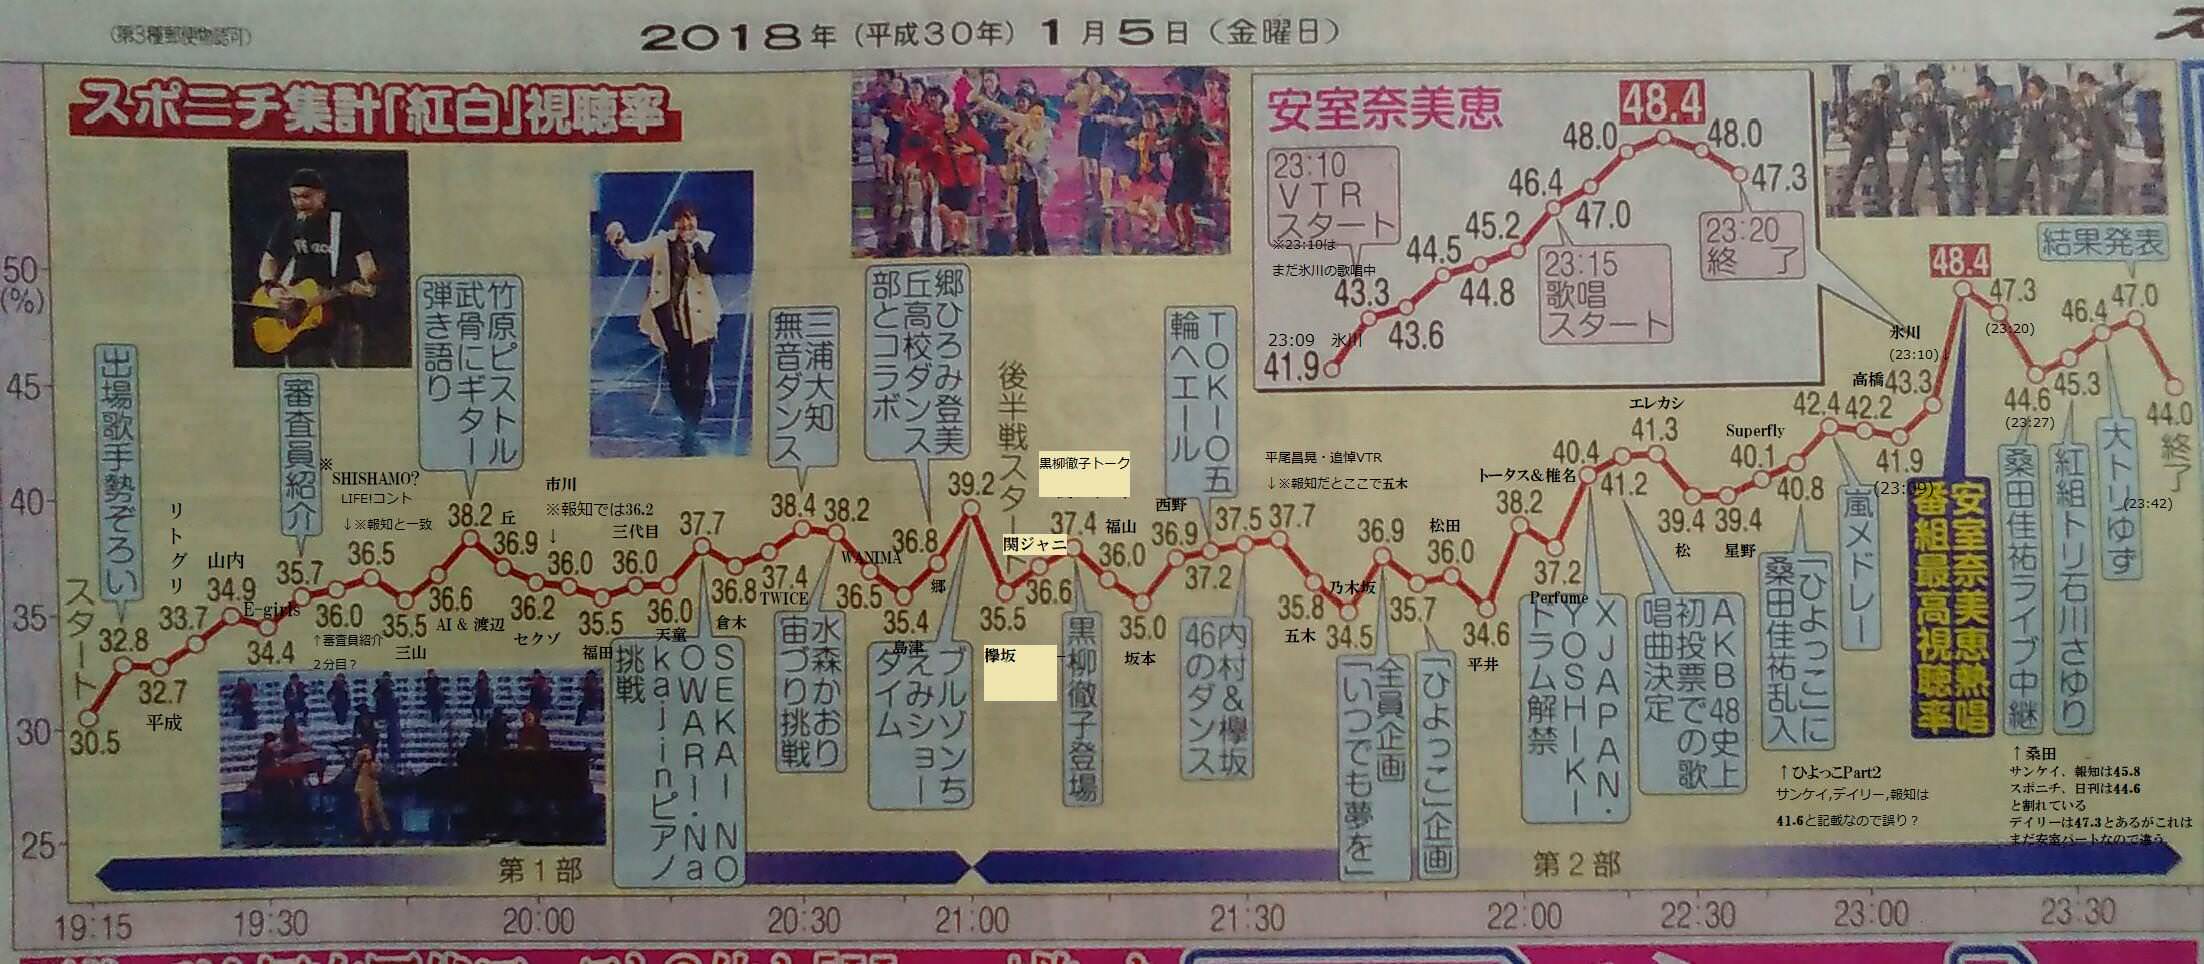 (第3種郵便物認可)
2018年 (平成30年) 1月5日 (金曜日)
スポニチ集計「紅白」視聴率
安室奈美恵
23:10
VTR
スタート
※23:10は
まだ氷川の歌唱中
23:09 氷川
41.9
43.3
43.6
44.5
44.8
45.2
46.4
47.0
48.0
48.4
48.0
47.3
23:15
歌唱
スタート
23:20
終了
50
(%)
45
40
35
30
25
スタート
30.5
出場歌手勢ぞろい
32.8
32.7
平成
リトグリ
33.7
山内
34.9
E-girls
34.4
審査員紹介
35.7
36.0
↑審査員紹介
2分目?
※
SHISHAMO?
LIFE!コント
↓※報知と一致
36.5
35.5
三山
36.6
AI & 渡辺
竹原ピストル
武骨にギター
弾き語り
38.2
丘
36.9
36.2
セクゾ
市川
※報知では36.2
↓
36.0
35.5
福田
三代目
36.0
36.0
天童
37.7
SEKAI NO
OWARI・Na
kajinピアノ
挑戦
36.8
倉木
37.4
TWICE
三浦大知
無音ダンス
38.4
38.2
水森かおり
宙づり挑戦
WANIMA
36.5
35.4
島津
36.8
郷
郷ひろみ登美
丘高校ダンス
部とコラボ
39.2
ブルゾンち
えみショー
タイム
後半戦スタート
35.5
欅坂
関ジャニ
36.6
黒柳徹子トーク
37.4
黒柳徹子登場
福山
36.0
35.0
坂本
西野
36.9
37.2
TOKIO五
輪へエール
37.5
内村&欅坂
46のダンス
平尾昌晃・追悼VTR
↓※報知だとここで五木
37.7
35.8
五木
乃木坂
34.5
36.9
全員企画
「いつでも夢を」
35.7
「ひよっこ」企画
松田
36.0
34.6
平井
38.2
37.2
Perfume
トータス&椎名
40.4
X JAPAN・
YOSHIKI
ドラム解禁
41.2
AKB48史上
初投票での歌
唱曲決定
エレカシ
41.3
39.4
松
39.4
星野
Superfly
40.1
40.8
「ひよっこ」に
桑田佳祐乱入
↑ひよっこPart2
サンケイ,デイリー,報知は
41.6と記載なので誤り?
42.4
嵐メドレー
高橋
42.2
41.9
(23:09)
氷川
(23:10)↓
43.3
48.4
安室奈美恵熱唱
番組最高視聴率
47.3
(23:20)
44.6
(23:27)
桑田佳祐ライブ中継
↑桑田
サンケイ、報知は45.8
スポニチ、日刊は44.6
と割れている
デイリーは47.3とあるがこれは
まだ安室パートなので違う
45.3
紅組トリ石川さゆり
46.4
大トリゆず
結果発表
47.0
(23:42)
44.0
終了
第1部
第2部
19:15
19:30
20:00
20:30
21:00
21:30
22:00
22:30
23:00
23:30